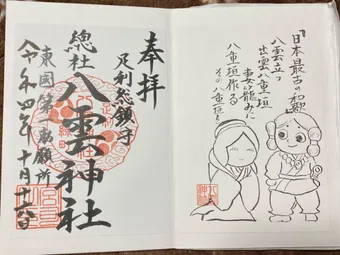 『日本最古の和歌』
八雲立つ
出雲八重垣
妻籠みに
八重垣作る
その八重垣を
奉拝
足利総鎮守
總社
八雲神社
東國第一勅願所
令和四年十月十六日